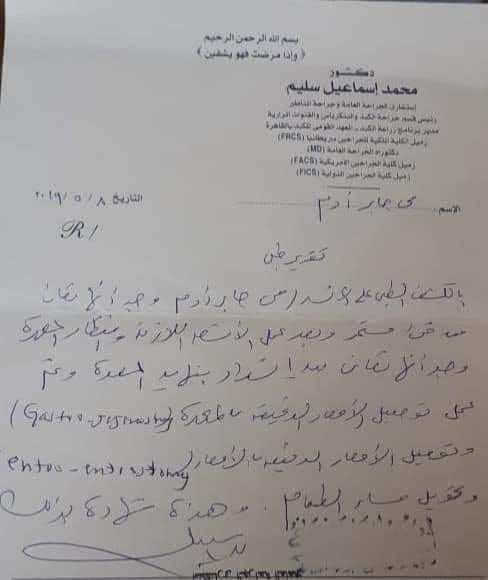 بسم الله الرحمن الرحيم
﴿ وإذا مرضت فهو يشفين ﴾
دكتور
محمد إسماعيل سليم
إستشارى الجراحة العامة وجراحة المناظير
رئيس قسم جراحة الكبد والبنكرياس والقنوات المرارية
مدير برنامج زراعة الكبد - المعهد القومى للكبد بالقاهرة
زميل الكلية الملكية للجراحين بريطانيا (FRCS)
دكتوراه الجراحة العامة (MD)
زميل كلية الجراحين الأمريكية (FACS)
زميل كلية الجراحين الدولية (FICS)
الإسم : جابر آدم
التاريخ ٨ / ٥ / ٢٠١٩
R/
تقرير طبى
بالكشف الطبى على جابر آدم وجد أنها تعانى
من قئ مستمر وبعد عمل الأشعة اللازمة ومنظار المعدة
وجد أنها تعانى من إنسداد بنهاية المعدة وتم
عمل توصيل الأمعاء الدقيقة بالمعدة (Gastro-jejunostomy)
وتوصيل الأمعاء الدقيقة بالأمعاء (entro-entrostomy
وتحويل مسار الطعام . وهذه شهادة بذلك